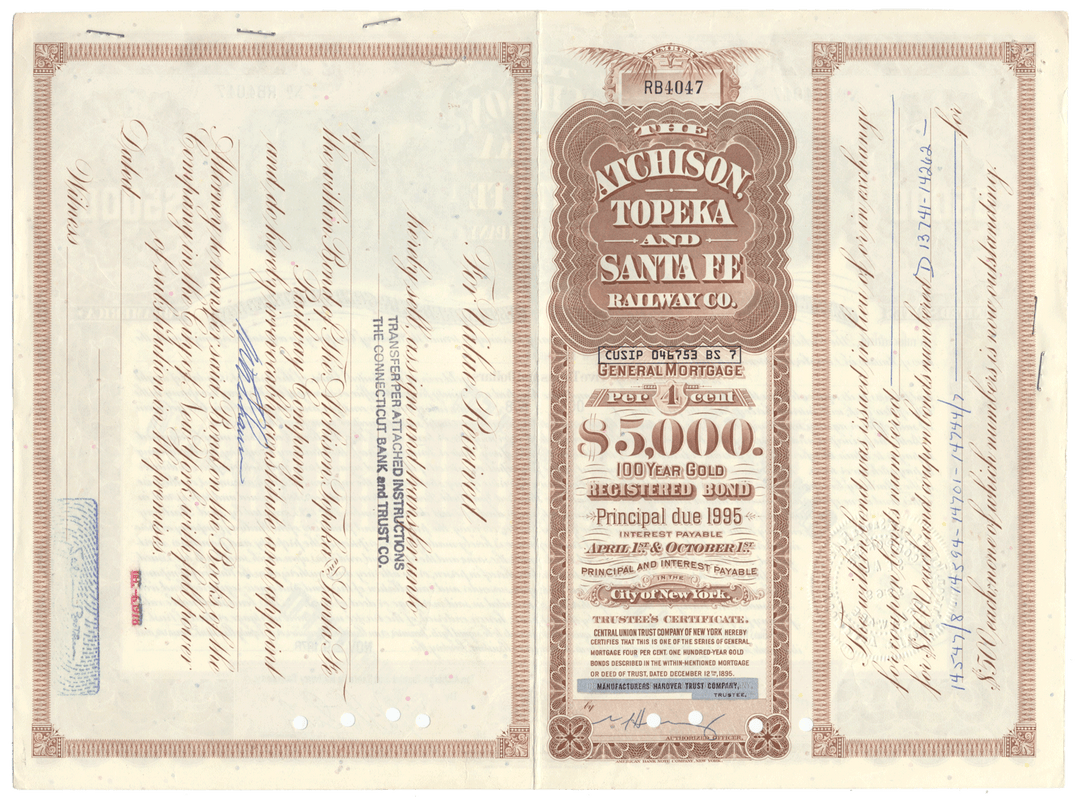 NUMBER
RB4047
THE
ATCHISON,
TOPEKA
AND
SANTA FE
RAILWAY CO.
CUSIP 046753 BS 7
GENERAL MORTGAGE
Per 4 cent
$5,000.
100 YEAR GOLD
REGISTERED BOND
Principal due 1995
INTEREST PAYABLE
APRIL 1ST & OCTOBER 1ST
PRINCIPAL AND INTEREST PAYABLE
IN THE
City of New York.
TRUSTEE'S CERTIFICATE.
CENTRAL UNION TRUST COMPANY OF NEW YORK HEREBY
CERTIFIES THAT THIS IS ONE OF THE SERIES OF GENERAL
MORTGAGE FOUR PER CENT. ONE HUNDRED-YEAR GOLD
BONDS DESCRIBED IN THE WITHIN-MENTIONED MORTGAGE
OR DEED OF TRUST, DATED DECEMBER 12TH, 1895.
MANUFACTURERS HANOVER TRUST COMPANY,
TRUSTEE,
by
AUTHORIZED OFFICER.
AMERICAN BANK NOTE COMPANY, NEW YORK.
For Value Received
hereby sell, assign and transfer unto
TRANSFER PER ATTACHED INSTRUCTIONS
THE CONNECTICUT BANK and TRUST CO.
of
the within Bond of The Atchison, Topeka and Santa Fe
Railway Company
and do hereby irrevocably constitute and appoint
Attorney to transfer said Bond on the Books of the
Company in the City of New York with full power
of substitution in the premises.
Dated
Witness
This within bond was issued in lieu of or in exchange
for coupon bonds numbered
for $1000 each and coupon bonds numbered D 13741-14262 -
14547/8 - 14594 - 14701 - 14744/7 for
$500 each none of which numbers is now outstanding